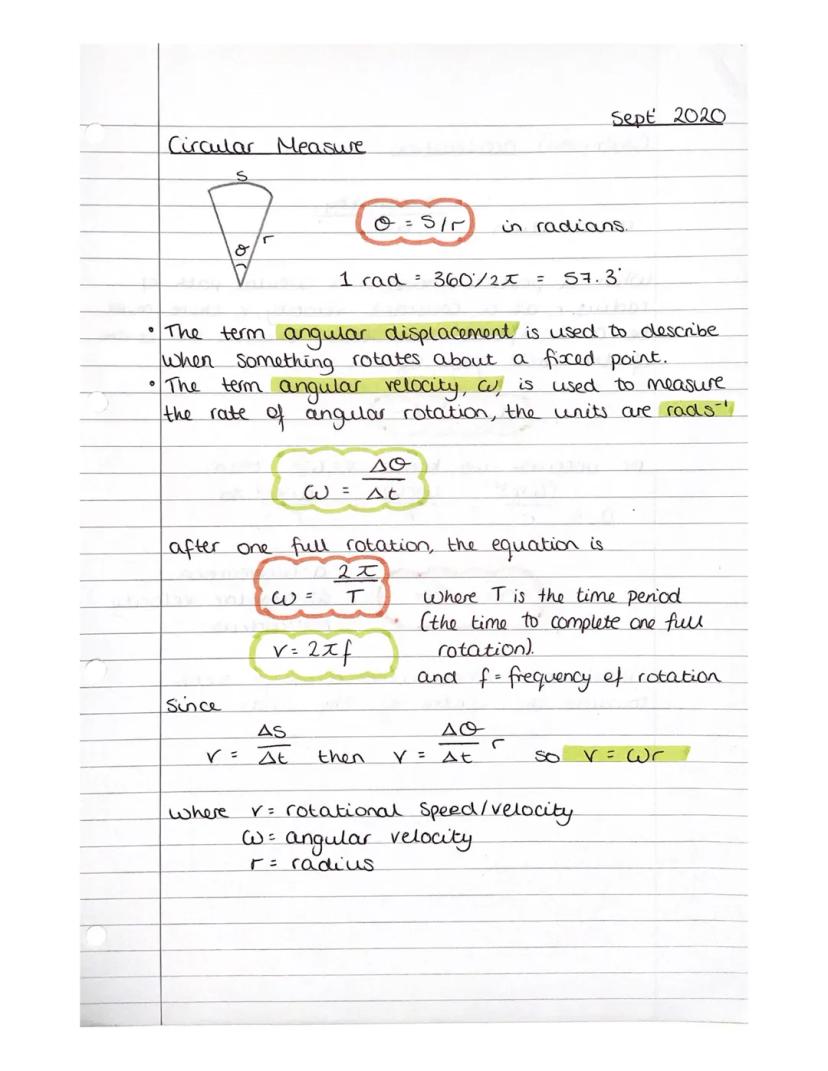 Sept 2020
Circular Measure
S
θ r
θ = S/r in radians.
1 rad = 360°/2π = 57.3°
• The term angular displacement is used to describe
when something rotates about a fixed point.
• The term angular velocity, ω, is used to measure
the rate of angular rotation, the units are rads⁻¹
ω = Δθ/Δt
after one full rotation, the equation is
ω = 2π/T where T is the time period
(the time to complete one full
v = 2πf rotation).
and f = frequency of rotation
Since
v = Δs/Δt then v = Δθ/Δt r so v = ωr
where v = rotational speed/velocity
ω = angular velocity
r = radius